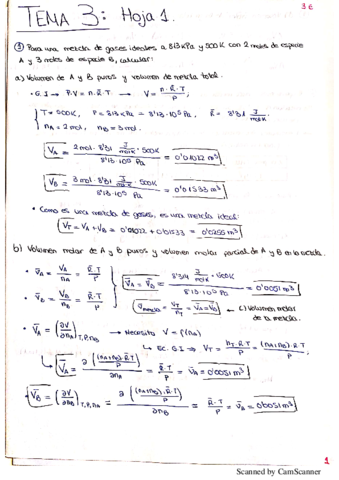 36
TEMA 3: Hoja 1.
① Para una mezcla de gases ideales a 813 kPa y 500K con 2 moles de especie
A y 3 moles de especie B, calcular:
a) Volumen de A y B puros y volumen de mezcla total.
· G.I → P·V = n·R·T → V = n·R·T / P
T = 500K, P = 813 kPa = 8'13·10⁵ Pa, R = 8'31 J/mol·K
nA = 2 mol, nB = 3 mol.
VA = 2 mol · 8'31 J/mol·K · 500K / 8'13·10⁵ Pa = 0'01022 m³
VB = 3 mol · 8'31 J/mol·K · 500K / 8'13·10⁵ Pa = 0'01533 m³
· Como es una mezcla de gases, es una mezcla ideal:
VT = VA + VB = 0'01022 + 0'01533 = 0'0255 m³
b) Volumen molar de A y B puros y volumen molar parcial de A y B en la mezcla.
· v̄A = VA/nA = R·T/P
· v̄B = VB/nB = R·T/P
v̄A = v̄B = 8'31 J/mol·K · 500K / 8'13·10⁵ Pa = 0'0051 m³
VT/nT = v̄A = v̄B ← c) Volumen molar
de la mezcla.
· V̄A = (∂V/∂nA)T,P,nB → Necesito V = f(nA)
→ Ec. G.I → VT = nT·R·T / P = (nA+nB)·R·T / P
V̄A = ∂((nA+nB)·R·T / P) / ∂nA = R·T/P = v̄A = 0'0051 m³
V̄B = (∂V/∂nB)T,P,nA = ∂((nA+nB)·R·T / P) / ∂nB = R·T/P = v̄A = 0'0051 m³
1
Scanned by CamScanner